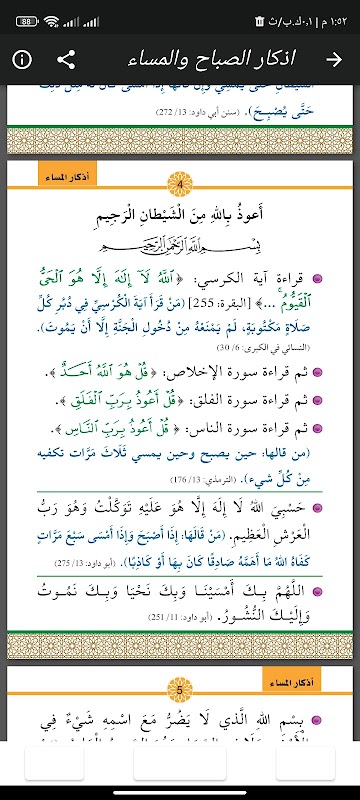 ١:٥٢ م | ٠.١ك.ب/ث
88
اذكار الصباح والمساء
حَتَّى يُصْبِحَ). (سنن أبي داود: 13/ 272)
أذكار المساء
4
أَعوذُ بِاللهِ مِنَ الْشَيْطانِ الْرَجيمِ
بِسْمِ اللهِ الرَّحْمَنِ الرَّحِيمِ
قراءة آية الكرسي: ﴿ٱللَّهُ لَآ إِلَٰهَ إِلَّا هُوَ ٱلْحَىُّ
ٱلْقَيُّومُ ۚ ...﴾ [البقرة: 255] (مَنْ قَرَأَ آيَةَ الْكُرْسِيِّ فِي دُبُرِ كُلِّ
صَلَاةٍ مَكْتُوبَةٍ، لَمْ يَمْنَعْهُ مِنْ دُخُولِ الْجَنَّةِ إِلَّا أَنْ يَمُوتَ).
(النسائي في الكبرى: 6/ 30)
ثم قراءة سورة الإخلاص: ﴿ قُلْ هُوَ ٱللَّهُ أَحَدٌ ﴾.
ثم قراءة سورة الفلق: ﴿ قُلْ أَعُوذُ بِرَبِّ ٱلْفَلَقِ ﴾.
ثم قراءة سورة الناس: ﴿ قُلْ أَعُوذُ بِرَبِّ ٱلنَّاسِ ﴾.
(من قالها: حين يصبح وحين يمسي ثَلَاثَ مَرَّات تكفيه
مِنْ كُلِّ شيء). (الترمذي: 13/ 176)
حَسْبِيَ اللهُ لَا إِلَهَ إِلَّا هُوَ عَلَيْهِ تَوَكَّلْتُ وَهُوَ رَبُّ
الْعَرْشِ الْعَظِيمِ. (مَنْ قَالَهَا: إِذَا أَصْبَحَ وَإِذَا أَمْسَى سَبْعَ مَرَّاتٍ
كَفَاهُ اللهُ مَا أَهَمَّهُ صَادِقًا كَانَ بِهَا أَوْ كَاذِبًا). (أبو داود: 13/ 275)
اللَّهُمَّ بِكَ أَمْسَيْنَا وَبِكَ نَحْيَا وَبِكَ نَمُوتُ
وَإِلَيْكَ النُّشُورُ. (أبو داود: 11/ 251)
أذكار المساء
5
بِسْمِ اللهِ الَّذي لَا يَضُرُّ مَعَ اسْمِهِ شَيْءٌ فِي